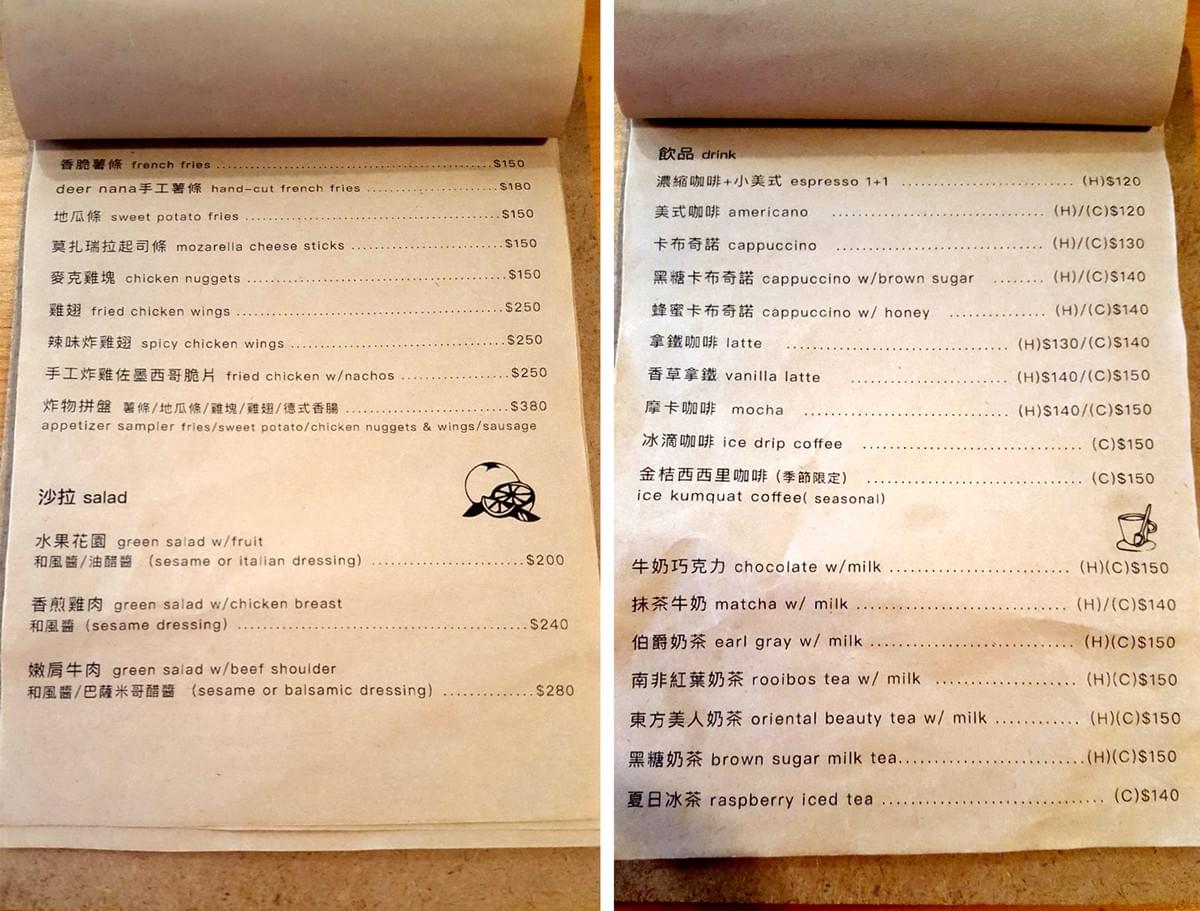 香脆薯條 french fries ........................................ $150
deer nana手工薯條 hand-cut french fries .................... $180
地瓜條 sweet potato fries ...................................... $150
莫扎瑞拉起司條 mozarella cheese sticks ....................... $150
麥克雞塊 chicken nuggets ....................................... $150
雞翅 fried chicken wings ....................................... $250
辣味炸雞翅 spicy chicken wings ................................ $250
手工炸雞佐墨西哥脆片 fried chicken w/nachos ................ $250
炸物拼盤 薯條/地瓜條/雞塊/雞翅/德式香腸 ........................ $380
appetizer sampler fries/sweet potato/chicken nuggets & wings/sausage
沙拉 salad
水果花園 green salad w/fruit
和風醬/油醋醬 (sesame or italian dressing) ...................... $200
香煎雞肉 green salad w/chicken breast
和風醬 (sesame dressing) .......................................... $240
嫩肩牛肉 green salad w/beef shoulder
和風醬/巴薩米哥醋醬 (sesame or balsamic dressing) ............ $280
飲品 drink
濃縮咖啡+小美式 espresso 1+1 ........................ (H)$120
美式咖啡 americano .............................. (H)/(C)$120
卡布奇諾 cappuccino ............................. (H)/(C)$130
黑糖卡布奇諾 cappuccino w/brown sugar ........ (H)/(C)$140
蜂蜜卡布奇諾 cappuccino w/ honey ............... (H)/(C)$140
拿鐵咖啡 latte ............................... (H)$130/(C)$140
香草拿鐵 vanilla latte ..................... (H)$140/(C)$150
摩卡咖啡 mocha ............................. (H)$140/(C)$150
冰滴咖啡 ice drip coffee ............................... (C)$150
金桔西西里咖啡 (季節限定) .............................. (C)$150
ice kumquat coffee( seasonal)
牛奶巧克力 chocolate w/milk ......................... (H)(C)$150
抹茶牛奶 matcha w/ milk .............................. (H)/(C)$140
伯爵奶茶 earl gray w/ milk ............................ (H)(C)$150
南非紅葉奶茶 rooibos tea w/ milk .................. (H)(C)$150
東方美人奶茶 oriental beauty tea w/ milk ............ (H)(C)$150
黑糖奶茶 brown sugar milk tea.......................... (H)(C)$150
夏日冰茶 raspberry iced tea ............................... (C)$140